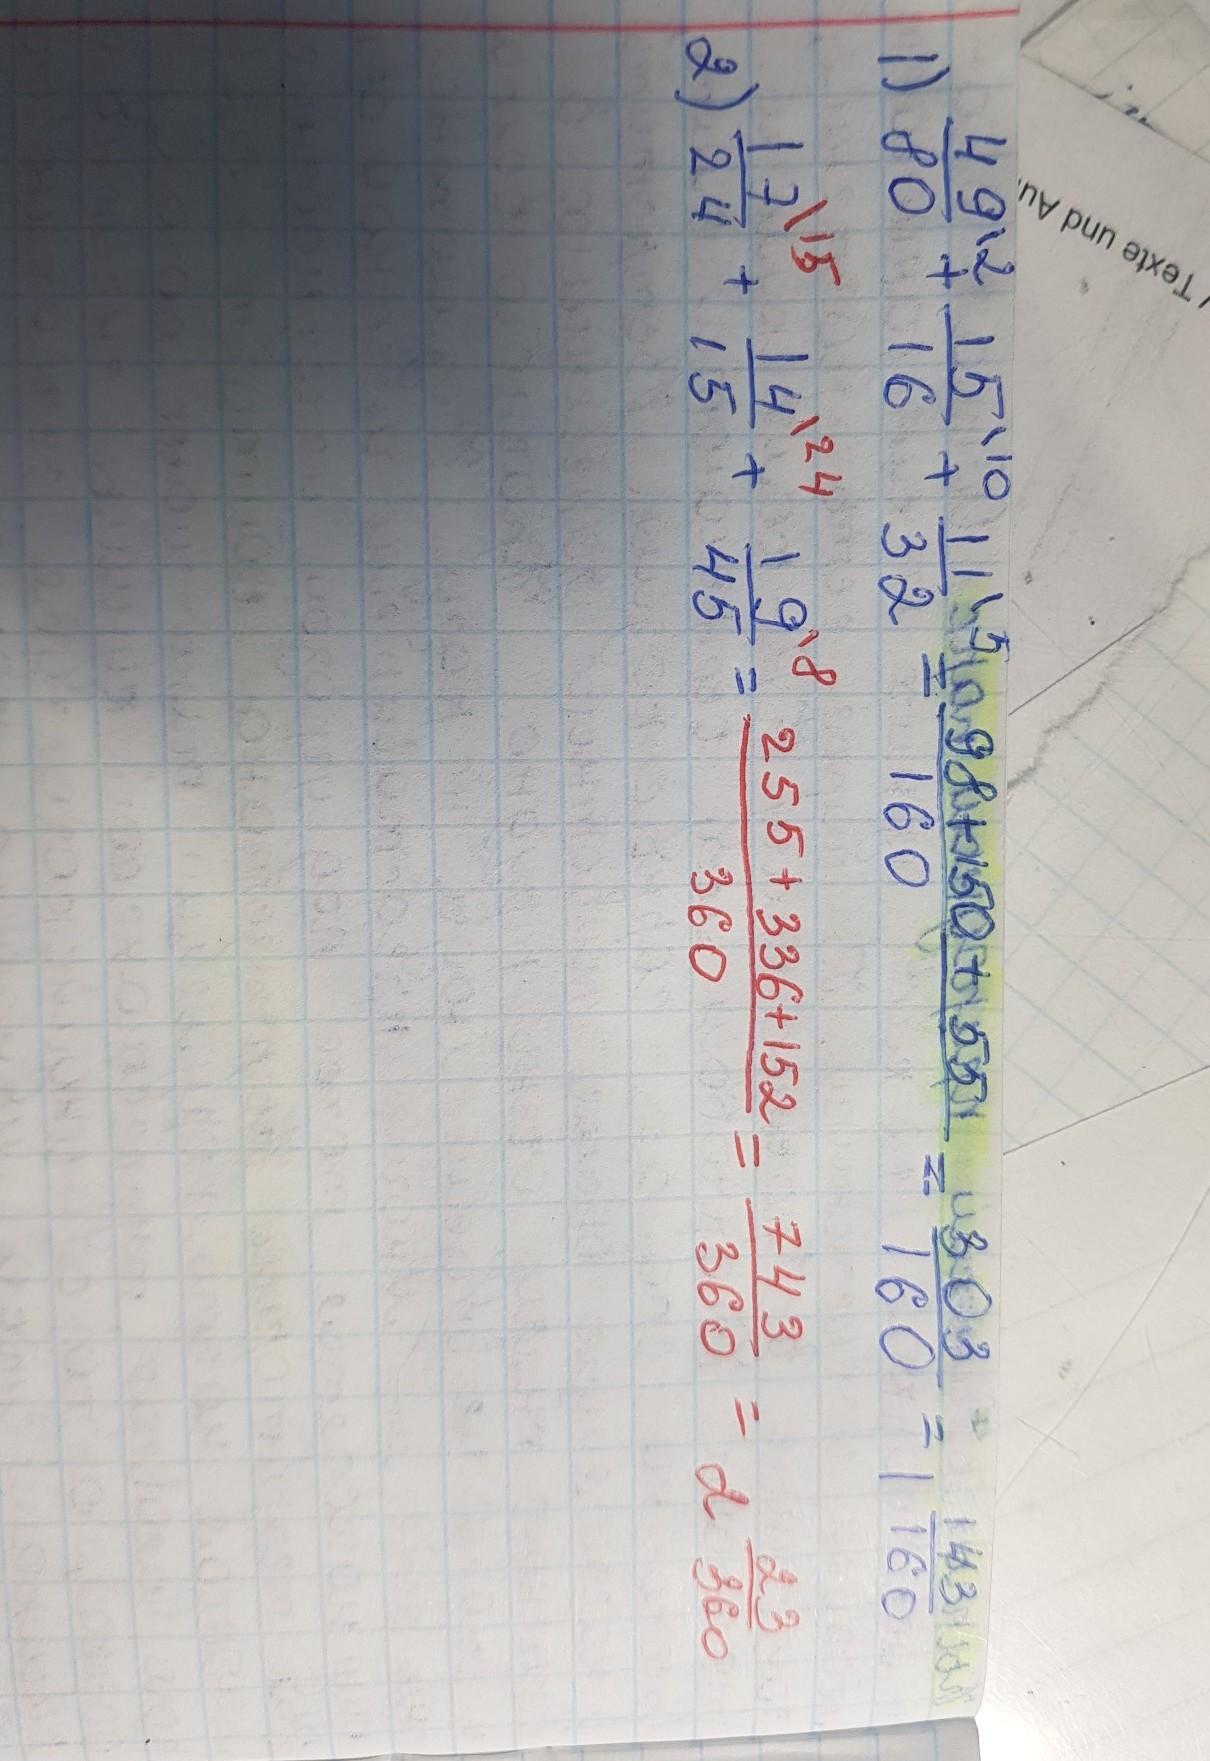 Texte und Au
1) 49\2/80 + 15\10/16 + 11\5/32 = 98+150+55/160 = 303/160 = 1 143/160
2) 17\15/24 + 14\24/15 + 19\8/45 = 255+336+152/360 = 743/360 = 2 23/360